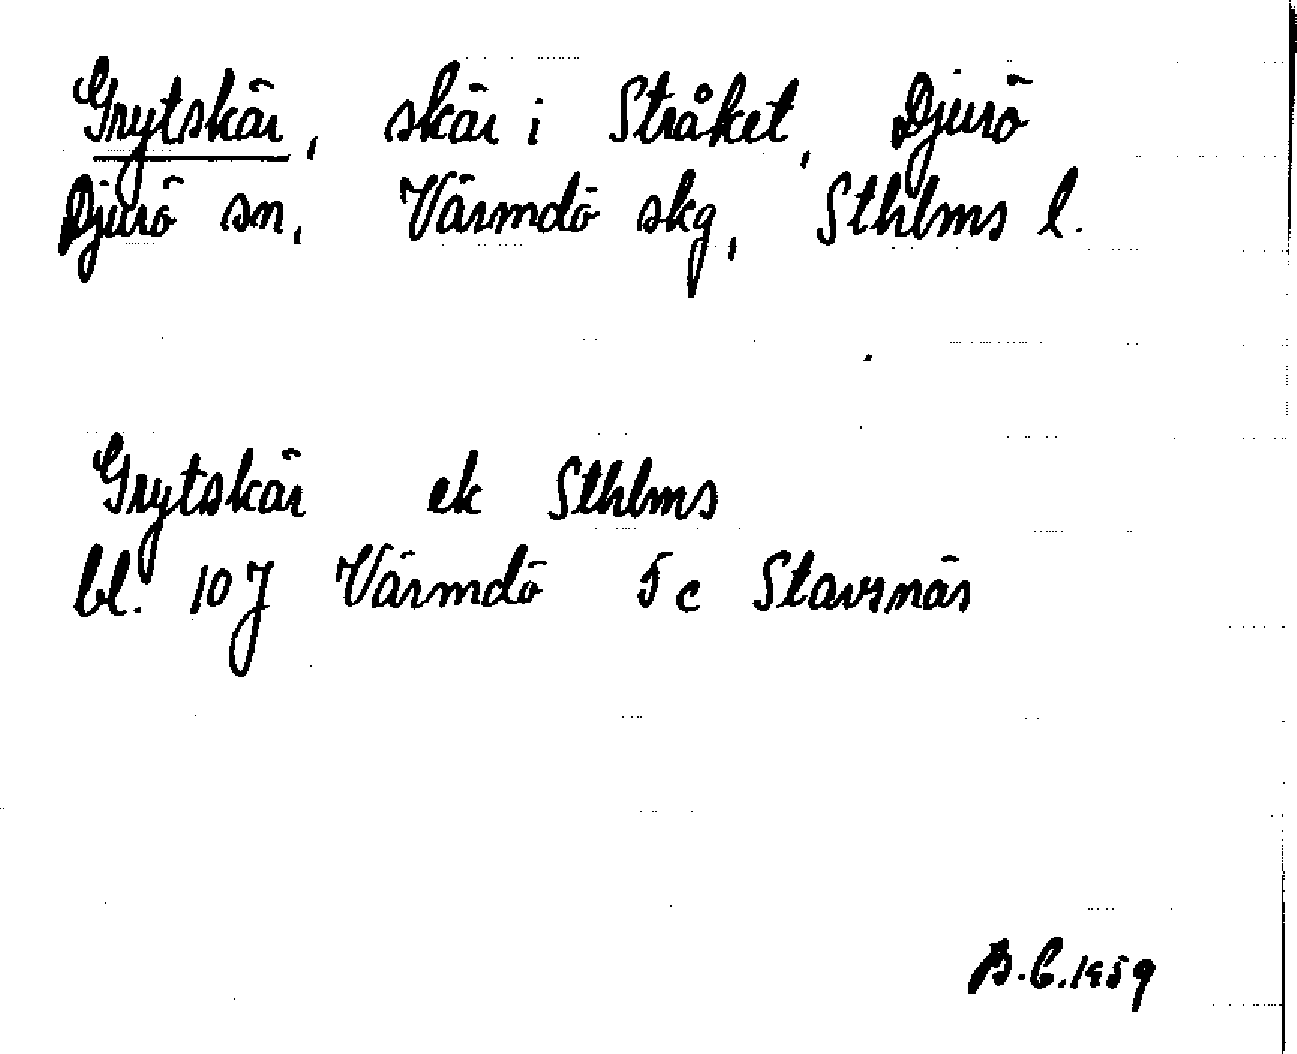 Grytskär, skär i Stråket, Djurö
Djurö sn, Värmdö skg, Sthlms l.
Grytskär ek Sthlms
bl. 10J Värmdö 5c Stavsnäs
B.C. 1959